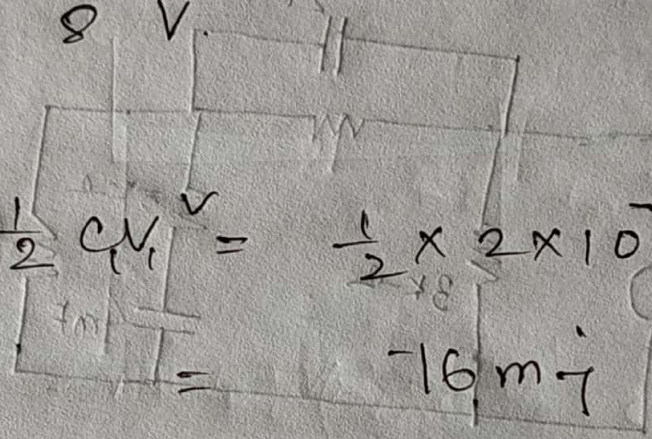 8 V
1/2 C₁V₁ᵛ = 1/2 × 2 × 10⁻
= 16 mj